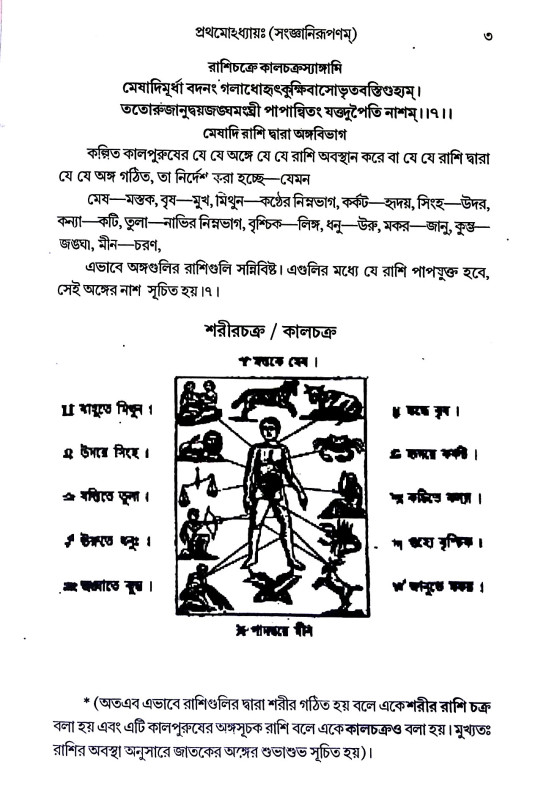 প্রথমোঽধ্যায়ঃ (সংজ্ঞানিরূপণম্)
৩
রাশিচক্রে কালচক্রস্যাঙ্গামি
মেষাদিমূর্ধা বদনং গলাধোহৃৎকুক্ষিবাসোভৃতবস্তিগুহ্যম্।
ততোরুজানুদ্বয়জঙ্ঘমংঘ্রী পাপান্বিতং যত্তদুপৈতি নাশম্।।৭।।
মেষাদি রাশি দ্বারা অঙ্গবিভাগ
কল্পিত কালপুরুষের যে যে অঙ্গে যে যে রাশি অবস্থান করে বা যে যে রাশি দ্বারা
যে যে অঙ্গ গঠিত, তা নির্দেশ করা হচ্ছে—যেমন
মেষ—মস্তক, বৃষ—মুখ, মিথুন—কণ্ঠের নিম্নভাগ, কর্কট—হৃদয়, সিংহ—উদর,
কন্যা—কটি, তুলা—নাভির নিম্নভাগ, বৃশ্চিক—লিঙ্গ, ধনু—উরু, মকর—জানু, কুম্ভ—
জঙ্ঘা, মীন—চরণ,
এভাবে অঙ্গগুলির রাশিগুলি সন্নিবিষ্ট। এগুলির মধ্যে যে রাশি পাপযুক্ত হবে,
সেই অঙ্গের নাশ সূচিত হয়।৭।
শরীরচক্র / কালচক্র
♈ মস্তকে মেষ।
♊ বাহুতে মিথুন।
মুখে বৃষ।
♌ উদরে সিংহ।
হৃদয়ে কর্কট।
♎ বস্তিতে তুলা।
কটিতে কন্যা।
♐ উরুতে ধনুঃ।
গুহ্যে বৃশ্চিক।
♒ জঙ্ঘাতে কুম্ভ।
জানুতে মকর।
♓ পাদদ্বয়ে মীন
* (অতএব এভাবে রাশিগুলির দ্বারা শরীর গঠিত হয় বলে একে শরীর রাশি চক্র
বলা হয় এবং এটি কালপুরুষের অঙ্গসূচক রাশি বলে একে কালচক্রও বলা হয়। মুখ্যতঃ
রাশির অবস্থা অনুসারে জাতকের অঙ্গের শুভাশুভ সূচিত হয়)।